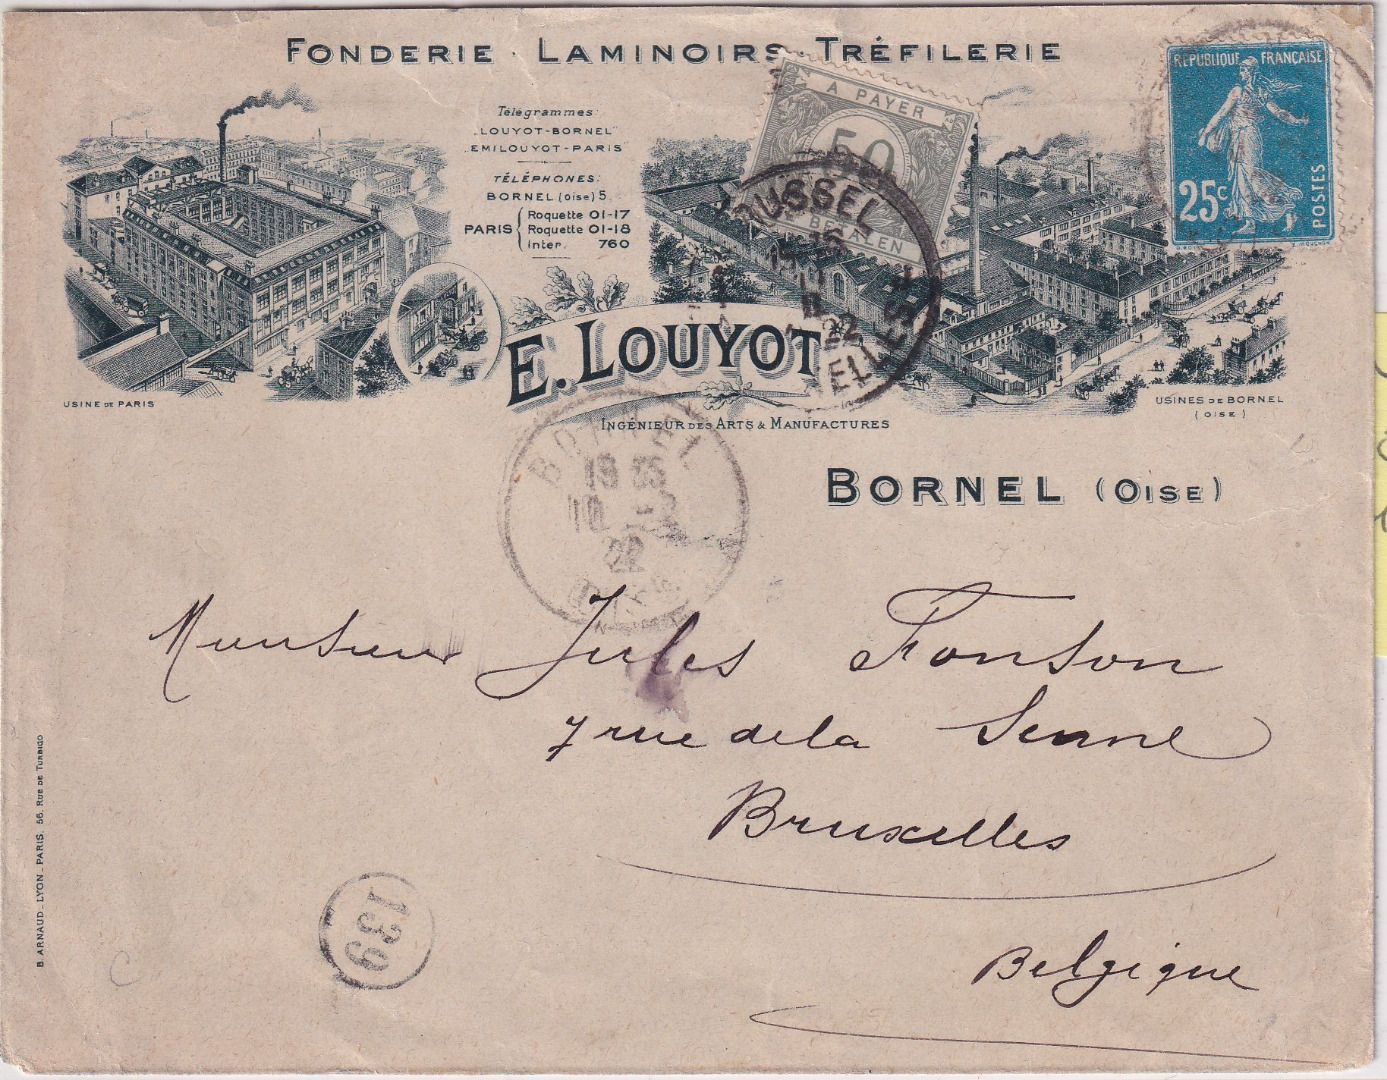 FONDERIE · LAMINOIRS · TRÉFILERIE
Télégrammes:
LOUYOT-BORNEL
EMILOUYOT-PARIS
TÉLÉPHONES:
BORNEL (Oise) 5
PARIS
Roquette 01-17
Roquette 01-18
Inter. 760
A PAYER
50
BETALEN
REPUBLIQUE FRANÇAISE
25c
POSTES
22
ELLES
E. LOUYOT
INGÉNIEUR DES ARTS & MANUFACTURES
USINE DE PARIS
USINES DE BORNEL
(OISE)
BORNEL (OISE)
BORNEL
10
22
Monsieur Jules Fonson
7 rue de la Senne
Bruxelles
Belgique
139
B. ARNAUD_LYON_PARIS. 56, Rue DE TURBIGO